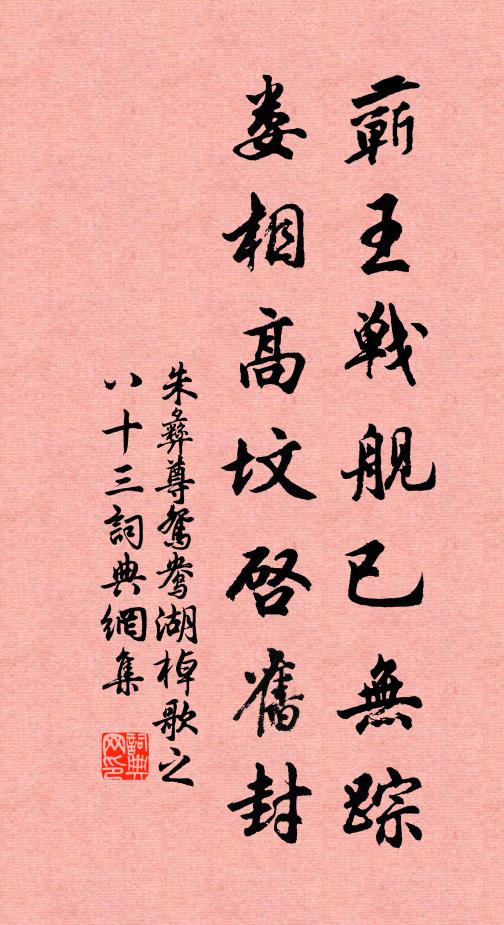 蕲王戦舰已無踪
娄相高坟啓舊封
朱彝尊鴛鴦湖棹歌之
八十三詞典網集
詞典
网印